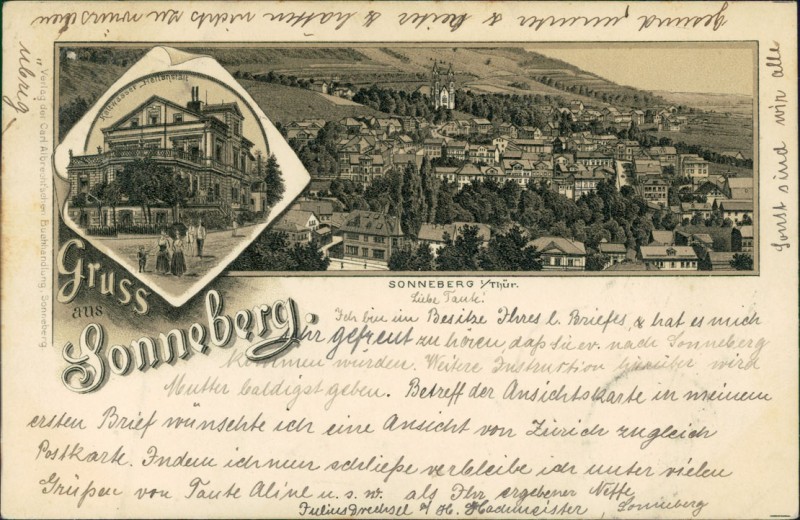 Kaltwasser Heilanstalt
SONNEBERG i/Thür.
Gruss
aus
Sonneberg.
Verlag der Carl Albrecht'schen Buchhandlung, Sonneberg
Liebe Tante!
Ich bin im Besitze Ihres l. Briefes, & hat es mich
sehr gefreut zu hören daß Sie ev. nach Sonneberg
kommen würden. Weitere Instruktion hierüber wird
Mutter baldigst geben. Betreff der Ansichtskarte in meinem
ersten Brief wünschte ich eine Ansicht von Zürich zugleich
Postkarte. Indem ich nun schließe verbleibe ich unter vielen
Grüßen von Tante Aline u. s. w. als Ihr ergebener Neffe
Julius Drechsel Sonneberg
Sonst sind wir alle
gesund, munter & heiter & hätten nichts zu wünschen
übrig